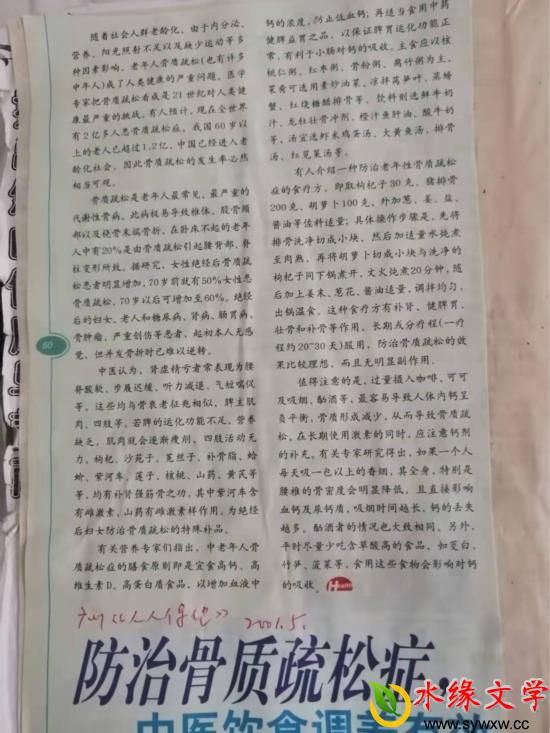 随着社会人群老龄化，由于内分泌、
营养、阳光照射不足以及缺少运动等多
种因素影响，老年人骨质疏松(也有许多
中年人)成了人类健康的严重问题，医学
专家把骨质疏松看成是21世纪对人类健
康最严重的挑战。有人预计，现在全世界
有2亿多人患骨质疏松症。我国60岁以
上的老人已超过1.2亿，中国已经进入老
龄化社会，因此骨质疏松的发生率必然
相当可观。
骨质疏松是老年人最常见、最严重的
代谢性骨病。此病极易导致椎体、股骨颈
部以及桡骨末端骨折，在卧床不起的老年
人中有20%是由骨质疏松引起腰背部、脊
柱变形所致。据研究，女性绝经后骨质疏
松患者明显增加，70岁前就有50%女性患
骨质疏松，70岁以后可增加至60%。绝经
后的妇女、老人和糖尿病、肾病、肠胃病、
骨肿瘤、严重创伤等患者，起初本人无感
觉，但并发骨折时已难以逆转。
中医认为，肾虚精亏者常表现为腰
脊酸软、步履迟缓、听力减退、气短喘促
等，这些均与骨衰老征兆相似，脾主肌
肉、四肢等，若脾的运化功能不足，营养
缺乏，肌肉就会逐渐瘦削，四肢活动无
力，枸杞、沙苑子、菟丝子、补骨脂、蛤
蚧、紫河车、莲子、核桃、山药、黄芪等
等，均有补肾强筋骨之功，其中紫河车含
有雌激素，山药有雌激素样作用，为绝经
后妇女防治骨质疏松的特殊补品。
有关营养专家们指出，中老年人骨
质疏松症的膳食原则即是宜食高钙、高
维生素D、高蛋白质食品，以增加血液中
钙的浓度，防止低血钙；再适当食用中药
健脾益胃之品，以保证脾胃运化功能正
常，有利于小肠对钙的吸收。主食应以核
桃仁粥、红枣粥、骨粉粥、腐竹粥为主，
菜肴可选用素炒油菜、凉拌莴笋叶、蒸螃
蟹、红烧糖醋排骨等，饮料则选鲜牛奶
汁、龙牡壮骨冲剂、橙汁鱼肝油、酸牛奶
等，汤宜选虾米鸡蛋汤、大黄鱼汤、排骨
汤、红苋菜汤等。
有人介绍一种防治老年性骨质疏松
症的食疗方，即取枸杞子30克，猪排骨
200克，胡萝卜100克，外加葱、姜、盐、
酱油等佐料适量；具体操作步骤是，先将
排骨洗净切成小块，然后加适量水炖煮
至肉熟，再将胡萝卜切成小块与洗净的
枸杞子同下锅煮开，文火炖煮20分钟，随
后加上姜末、葱花、酱油适量，调拌均匀，
出锅温食。这种食疗方有补肾、健脾胃、
壮骨和补骨等作用，长期或分疗程(一疗
程约20~30天)服用，防治骨质疏松的效
果比较理想，而且无明显副作用。
值得注意的是，过量摄入咖啡、可可
及吸烟、酗酒等，最容易导致人体内钙呈
负平衡，骨质形成减少，从而导致骨质疏
松。在长期使用激素的同时，应注意钙剂
的补充。有关专家研究得出，如果一个人
每天吸一包以上的香烟，其全身，特别是
腰椎的骨密度会明显降低，且直接影响
血钙及尿钙质，吸烟时间越长，钙的丢失
越多。酗酒者的情况也大致相同。另外，
平时尽量少吃含草酸高的食品，如茭白、
竹笋、菠菜等，食用这些食物会影响对钙
的吸收。Health
60
《人人保健》 2001.5.
防治骨质疏松症，
中医饮食调养
水缘文学
www.sywxw.cc